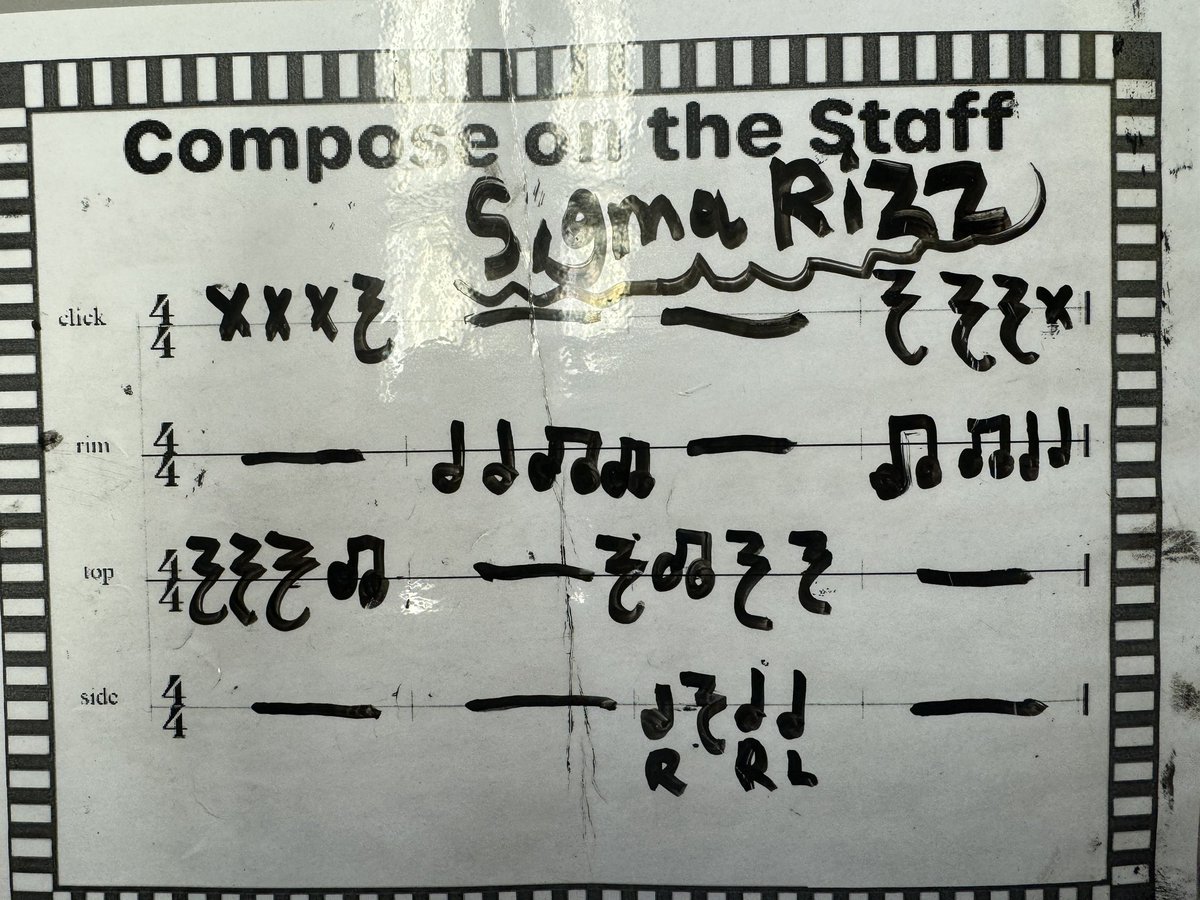 Compose on the Staff
Sigma Rizz
click 4/4 x x x x
rim 4/4
top 4/4
side 4/4
R R L